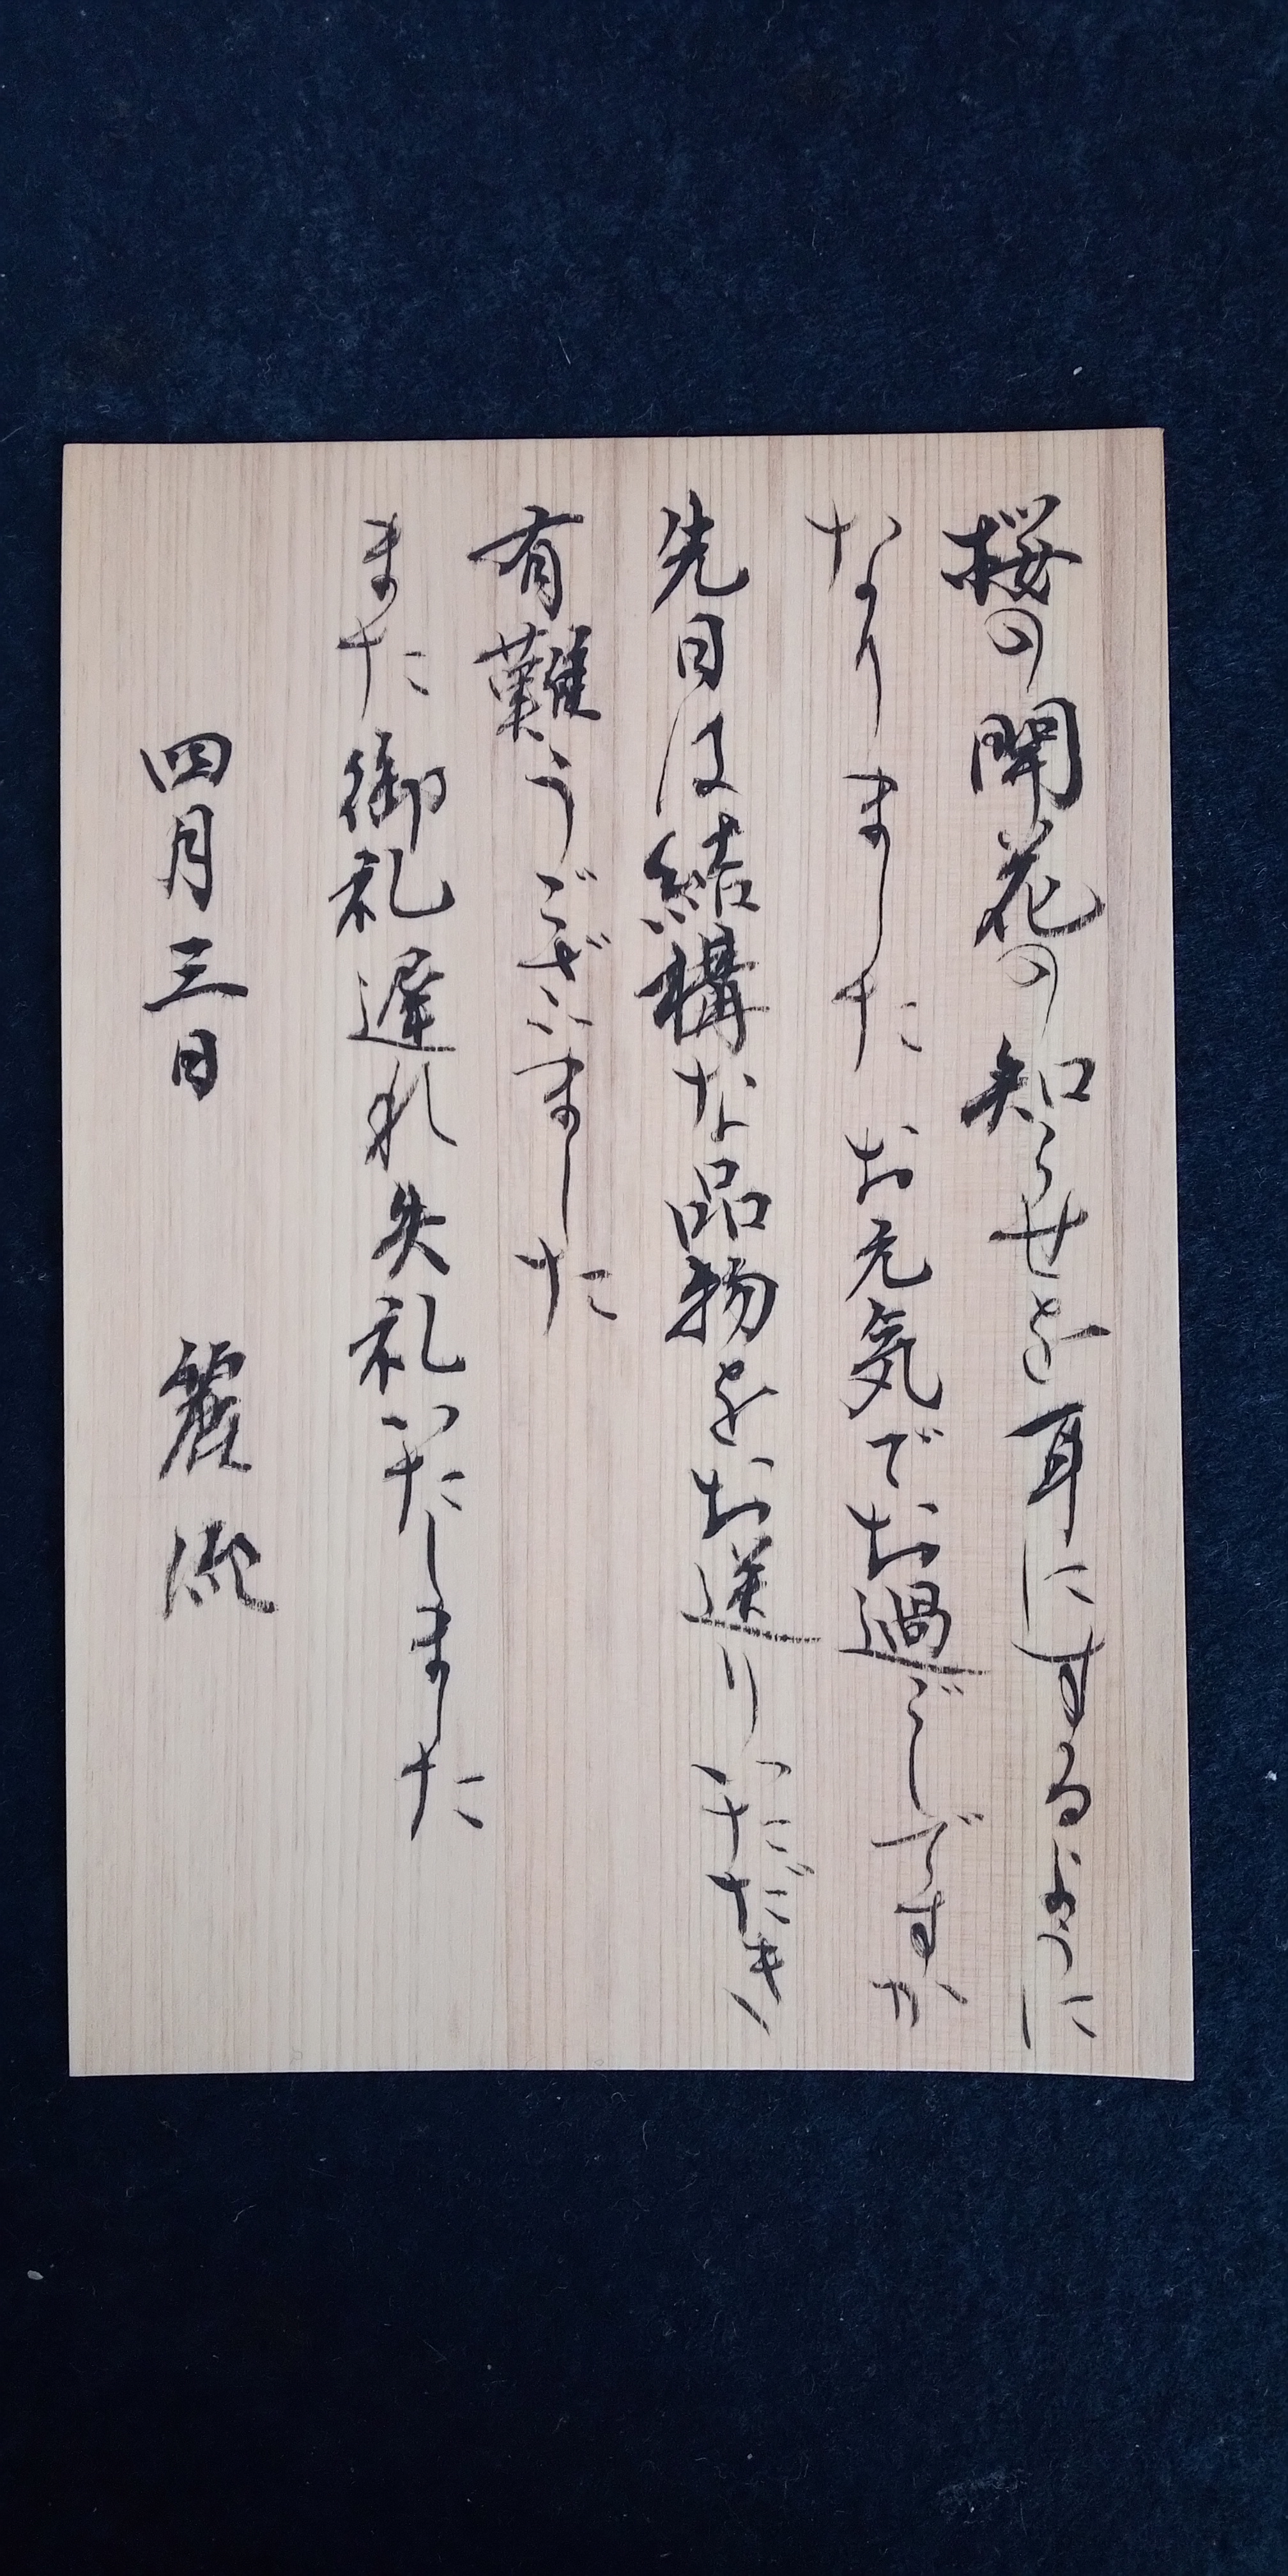 桜の開花の知らせを耳にするように
なりました お元気でお過ごしですか
先日は結構な品物をお送りいただき、
有難うございました
また御礼遅れ失礼いたしました
四月三日 麗